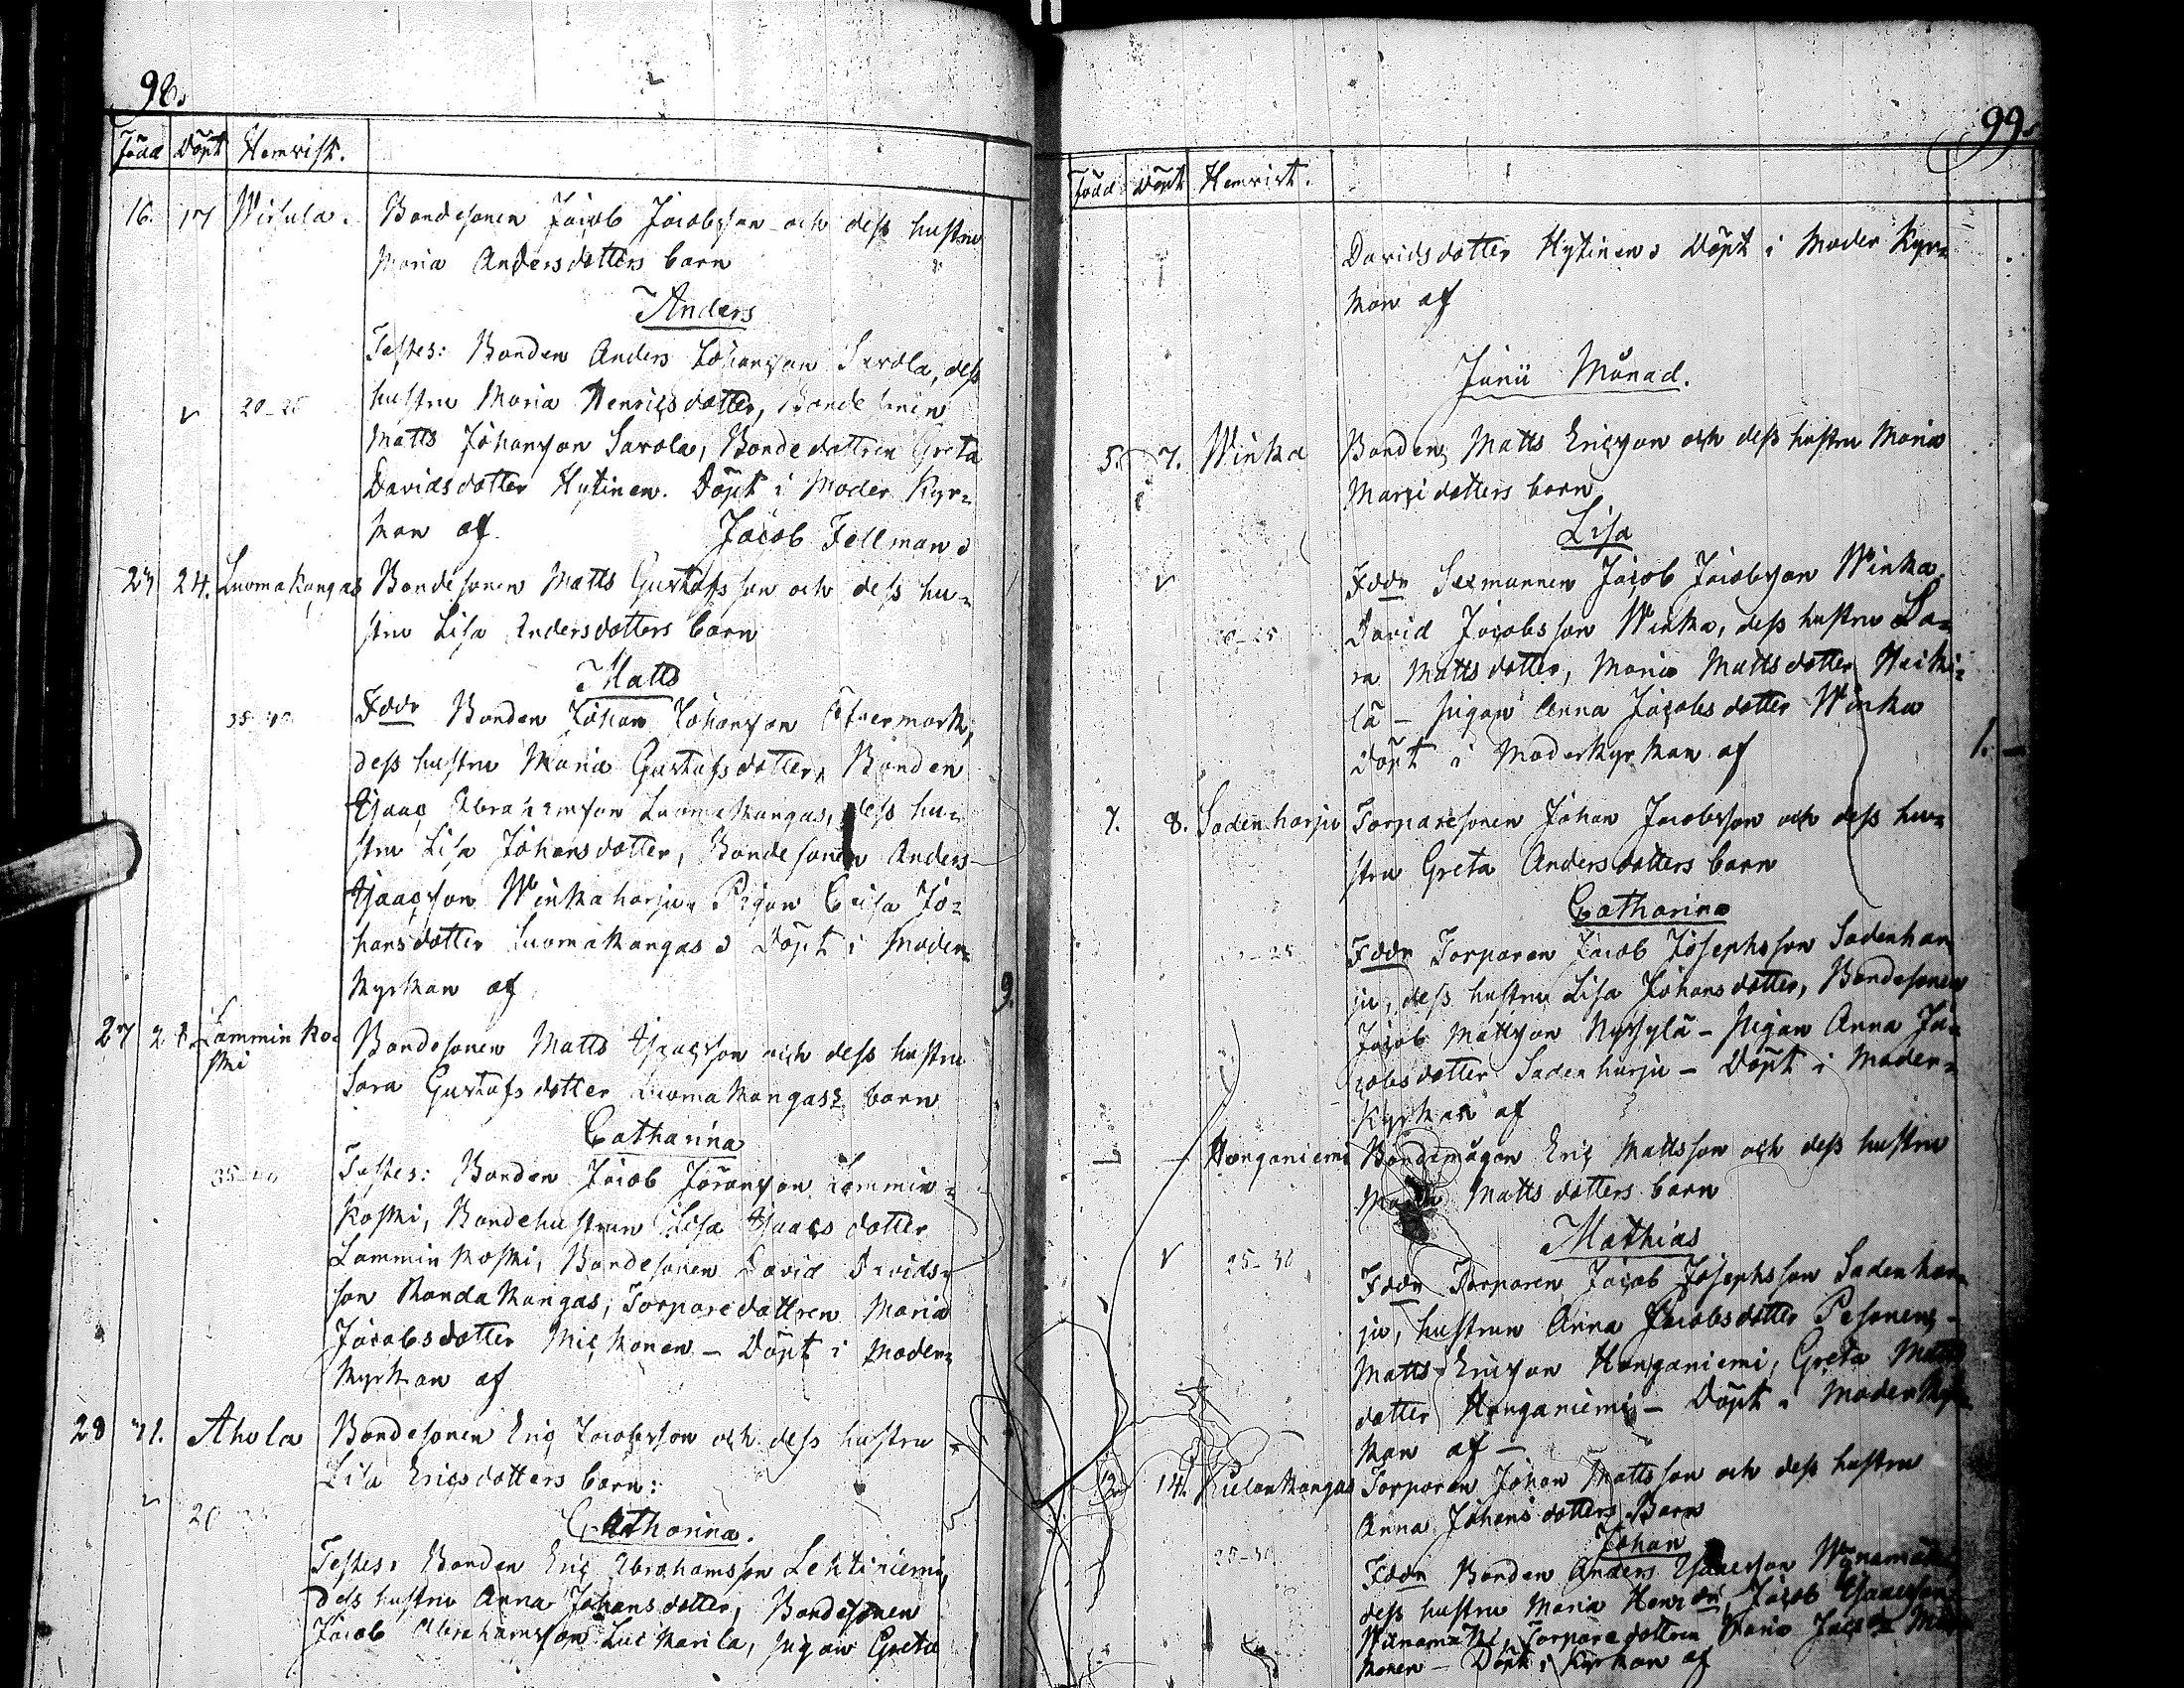 98.
Född Döpt Hemvist.
16. 17 Wirsula. Bondesonen Jacob Jacobsson och dess hustru
Maria Andersdotters barn
Anders
Testes: Bonden Anders Johansson Savola, dess
20-25 hustru Maria Henricsdotter, Bondesonen
Matts Johansson Savola, Bondedottren Greta
Davidsdotter Hytinen. Döpt i Moder Kyr-
kan af Jacob Fellman
24. Luomakangas Bondesonen Matts Gustafsson och dess hu-
stru Lisa Andersdotters barn
Matts
Fddr Bonden Johan Johansson
35-40
dess hustru Maria Gustafsdotter, Bonden
Isaac Abrahamsson Luomakangas, dess hu-
stru Lisa Johansdotter, Bondesonen Anders
Isaacsson Winkaharju. Pigan Caisa Jo-
hansdotter Luomakangas Döpt i Moder-
kyrkan af 9.
27 Lammin ko- Bondesonen Matts Isaacsson och dess hustru
ski Sara Gustafsdotter Luomakangass barn
Catharina
35-40 Testes: Bonden Jacob Göransson Lammin-
koski, Bondehustrun Lisa Isaacs dotter
Lamminkoski, Bondesonen David Davids-
son Kondakangas, Torparedottren Maria
Jacobsdotter Mickonen - Döpt i Moder-
kyrkan af
28 31. Ahola Bondesonen Eric Jacobsson och dess hustru
Lisa Ericsdotters barn:
Catharina.
Testes: Bonden Eric Abrahamsson Lehtiniemi,
dess hustru Anna Johansdotter, Bondesonen
Jacob Abrahamsson Luckarila, pigan Greta
99.
Född Döpt Hemvist.
Davidsdotter Hytinen Döpt i Moder Kyr-
kan af
Junii Månad.
5. 7. Winka Bonden Matts Ericsson och dess hustru Maria
Marcidotters barn
Lisa
Fddr Sexmannen Jacob Jacobsson Winka
20-25 David Jacobsson Winka, dess hustru Sa-
ra Mattsdotter, Maria Mattsdotter Heiki-
lä - pigan Anna Jacobsdotter Winka
Döpt i Moderkyrkan af 1. -
7. 8. Sadenharju Torparesonen Johan Jacobsson och dess hu-
stru Greta Andersdotters barn
Catharina
Fddr Torparen Jacob Josephsson Sadenhar-
ju, dess hustru Lisa Johansdotter, Bondesonen
Jacob Mattsson Nyssylä - pigan Anna Ja-
cobsdotter Sadenharju - Döpt i Moder-
Kyrkan af
Honganiemi Bondemågen Eric Mattsson och dess hustru
Maria Mattsdotters barn
Mathias
25-30 Fddr Torparen Jacob Josephsson Sadenhar-
ju, hustrun Anna Jacobsdotter Pesonen -
Matts Ericsson Honganiemi, Greta Matts
dotter Honganiemi - Döpt i Moderkyr-
kan af -
12. 14. Kielonkangas Torparen Johan Mattsson och dess hustru
Anna Johansdotters Barn
Johan
25-30 Fddr Bonden Anders Isaacsson Winamäki
dess hustru Maria Henrdr, Jacob Isaacsson
Winamäki, Torparedottren Maria
Döpt i Kyrkan af